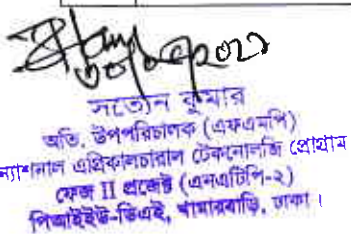 সত্যেন কুমার
অতি. উপপরিচালক (এফএমপি)
ন্যাশনাল এগ্রিকালচারাল টেকনোলজি প্রোগ্রাম
ফেজ II প্রজেক্ট (এনএটিপি-২)
পিআইইউ-ডিএই, খামারবাড়ি, ঢাকা।